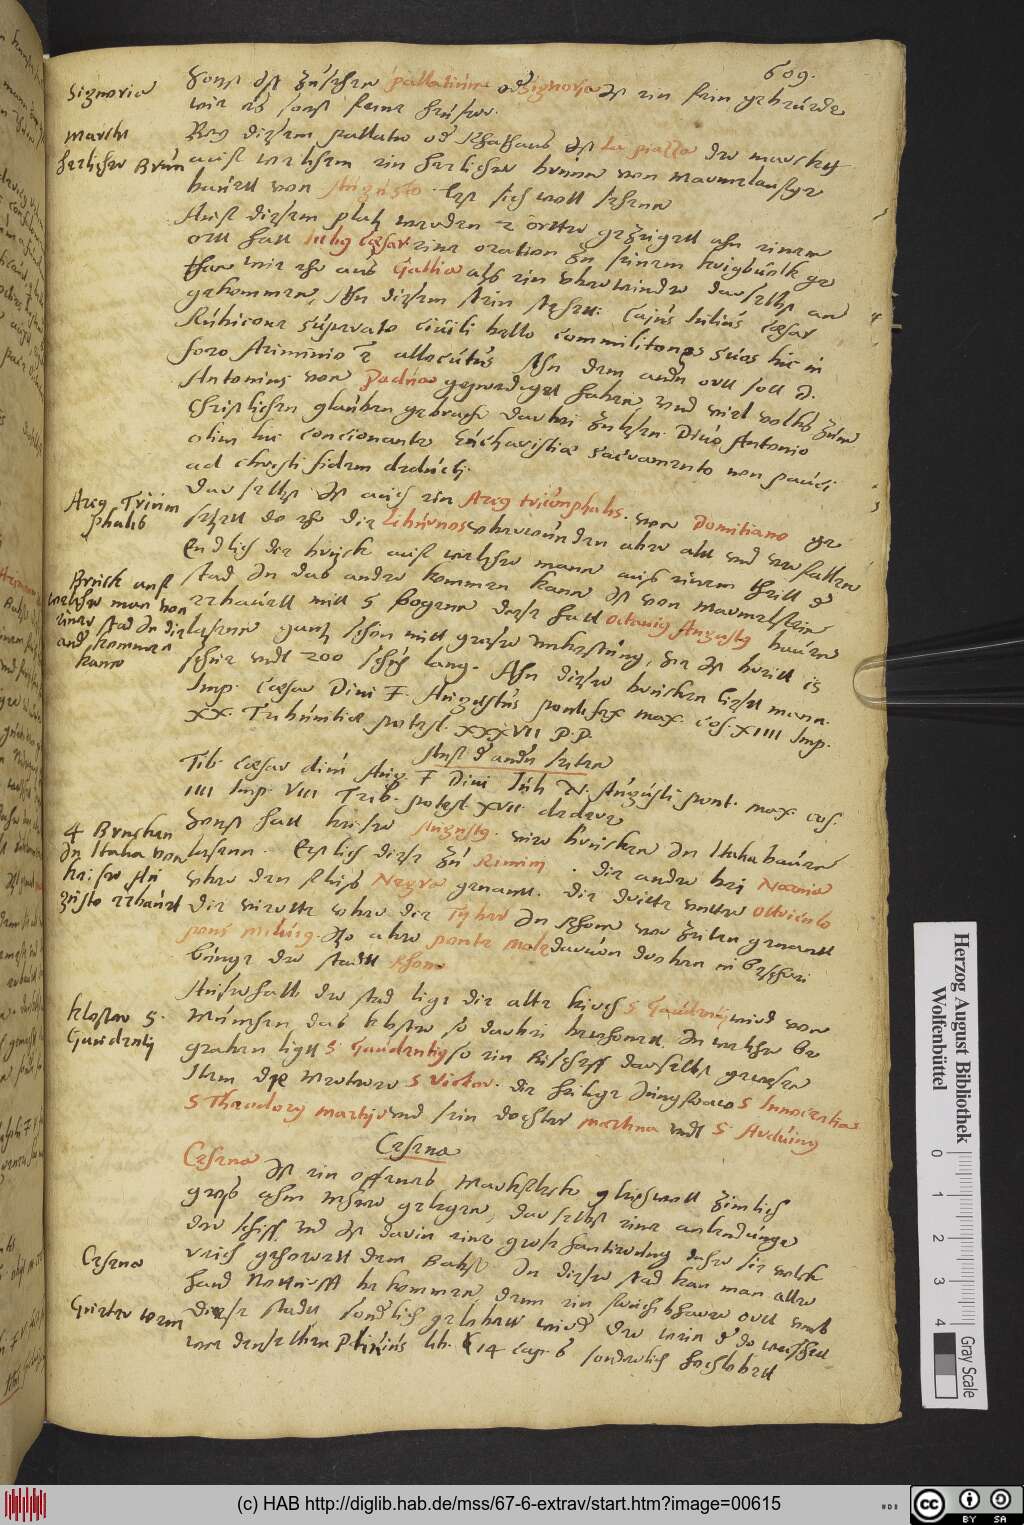 609.
Signoria
Sonst ist zusehen pallatium od Signoria ist ein fein gebeude
wie es sonst feine heuser.
Marcht
Bey diesem pallatio od Rhathaus ist La piazza der marckt
herlicher Brun
auff welchem ein herlicher brunn von Marmelsteine
bauett von Augusto lest sich woll sehenn
Auff diesem platz werden 2 örtter gezeigett ahn einem
ortt hatt Julig Cæsar eine oration zu seinem kriegsvolk ge
than wie ehr aus Gallia alß ein uberwinder daselbst an
gekommen, Ahn diesem stein stehett: Cajus Julius Cæsar
Rubicone superato civili bello commilitones suos hic in
foro Ariminio allocutus Ahn dem andn ortt soll S.
Antonius von Padua geprediget haben und viel volks zum
christlichen glauben gebracht darbei zulesen. Divo Antonio
olim hic concionante Eucharistiæ sacramento non pauci
ad christi fidem deducti.
Arcq Trium
phalis
Daselbst ist auch ein Arcq triumphalis. von Domitiano ge
setzett do ehr die Liburnos uberwunden aber alt und verfallen
Brück auff
welcher man von
einer stad in die
ander kommen
kann
Endlich die brück auff welcher mann aus einem theill der
stad in das ander kommen kann ist von marmelstein
erbauett mitt 5 bogenn diese hatt Octavig Augustg bauen
lassenn gantz schon mitt grosser unkostung, sie ist breitt 15
schue undt 200 schus lang. Ahn dieser brucken liesett mann.
Imp. Cæsar Divi F. Augustus pontifex max. cos. XIIII Imp.
XX. Tribunitiæ potest. XXXVII P.P.
Auff d andn seiten
Tib. Cæsar divi Aug. F Divi Juli N. Augusti pont. max. cos.
IIII Imp. VIII Trib. potest XVII. dedere
4 Brucken
in Italia von
keiser Au
gusto erbauet
Sonst hatt keiser Augustg. vier brucken in Italia bauen
lassenn. Erstlich diese zu Rimini. die ander bei Narnia
uber den fluss Negra genant. die dritte unter Otricolo
die vierdtte uber die Tyber in Rhom vor zeiten genantt
pons milvig. Itzo aber ponte mole davon droben in beschrei
bunge der stadtt Rhom
Kloster S.
Gaudentij
Ausserhalb der stad ligt die alte kirch S Gaudentij wird von
München das kloster so darbei bewhonett. In welcher be
graben ligtt S Gaudentig, so ein Bischoff daselbst gewesen
Item die Merterer S Victor. die heilige Jungfraw S Innocentia
S Theodorg martyr und sein dochter martina undt S Arduing
Cesena
Cesena ist ein offenes Marckflecke gleichwoll zimlich
gross ahm Mehre gelegen, daselbst eine anlendunge
der schiff, und ist darin eine grosse hantierung
Cesena
reich gehorett dem Babst In dieser stad kan man aller
hand Notturfft bekommen, denn ein fruchtbhare ortt umb
Gueter wein
diese stadtt sonderlich gelobett wird der wein d do wechsett
wie denselben Plinius lib. 14 cap. 6 sonderlich hochlobett
Herzog August Bibliothek
Wolfenbüttel
0 1 2 3 4
Gray Scale
(c) HAB http://diglib.hab.de/mss/67-6-extrav/start.htm?image=00615
CC BY SA